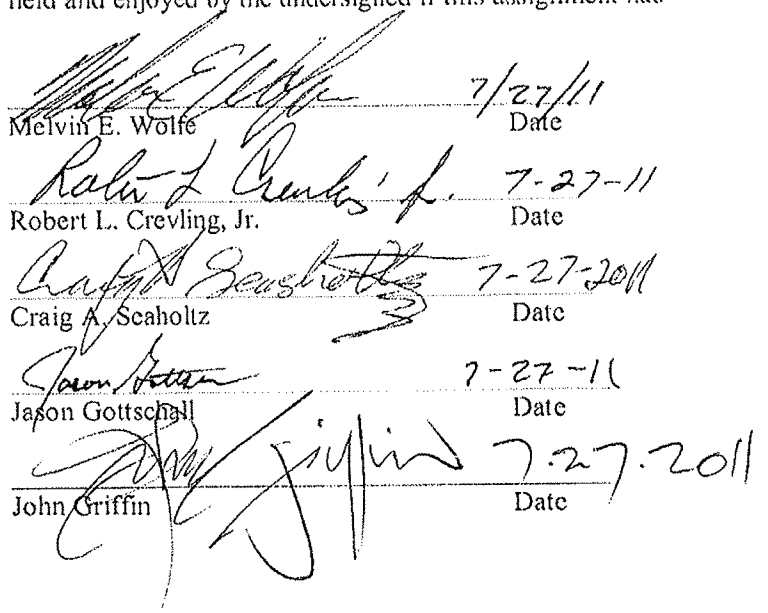 held and enjoyed by the undersigned if this assignment had
7/27/11
Melvin E. Wolfe Date
Robert L. Crevling, Jr. 7-27-11
Robert L. Crevling, Jr. Date
Craig A. Seaholtz 7-27-2011
Craig A. Seaholtz Date
Jason Gottschall 7-27-11
Jason Gottschall Date
John Griffin 7.27.2011
John Griffin Date